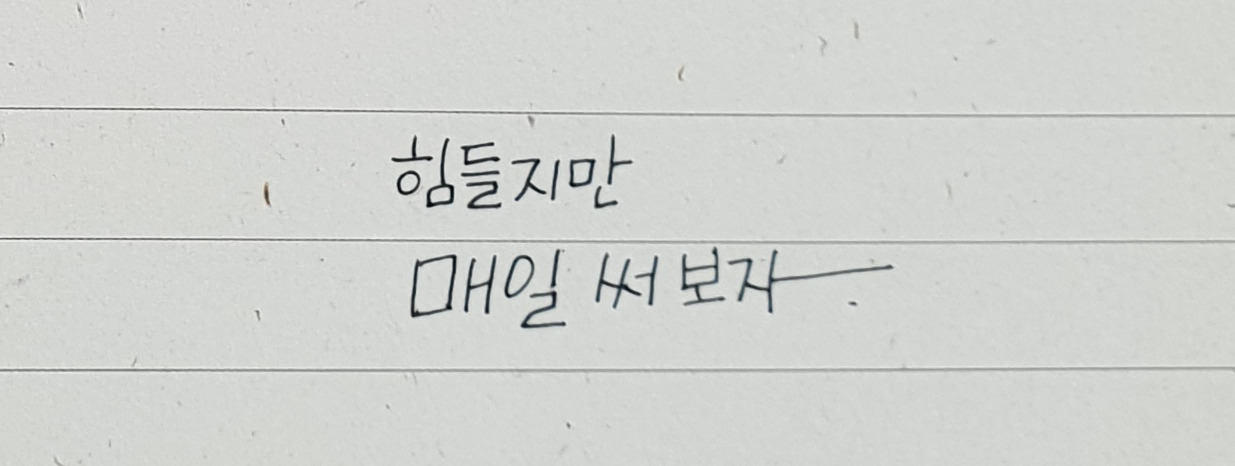 힘들지만
매일 써보자